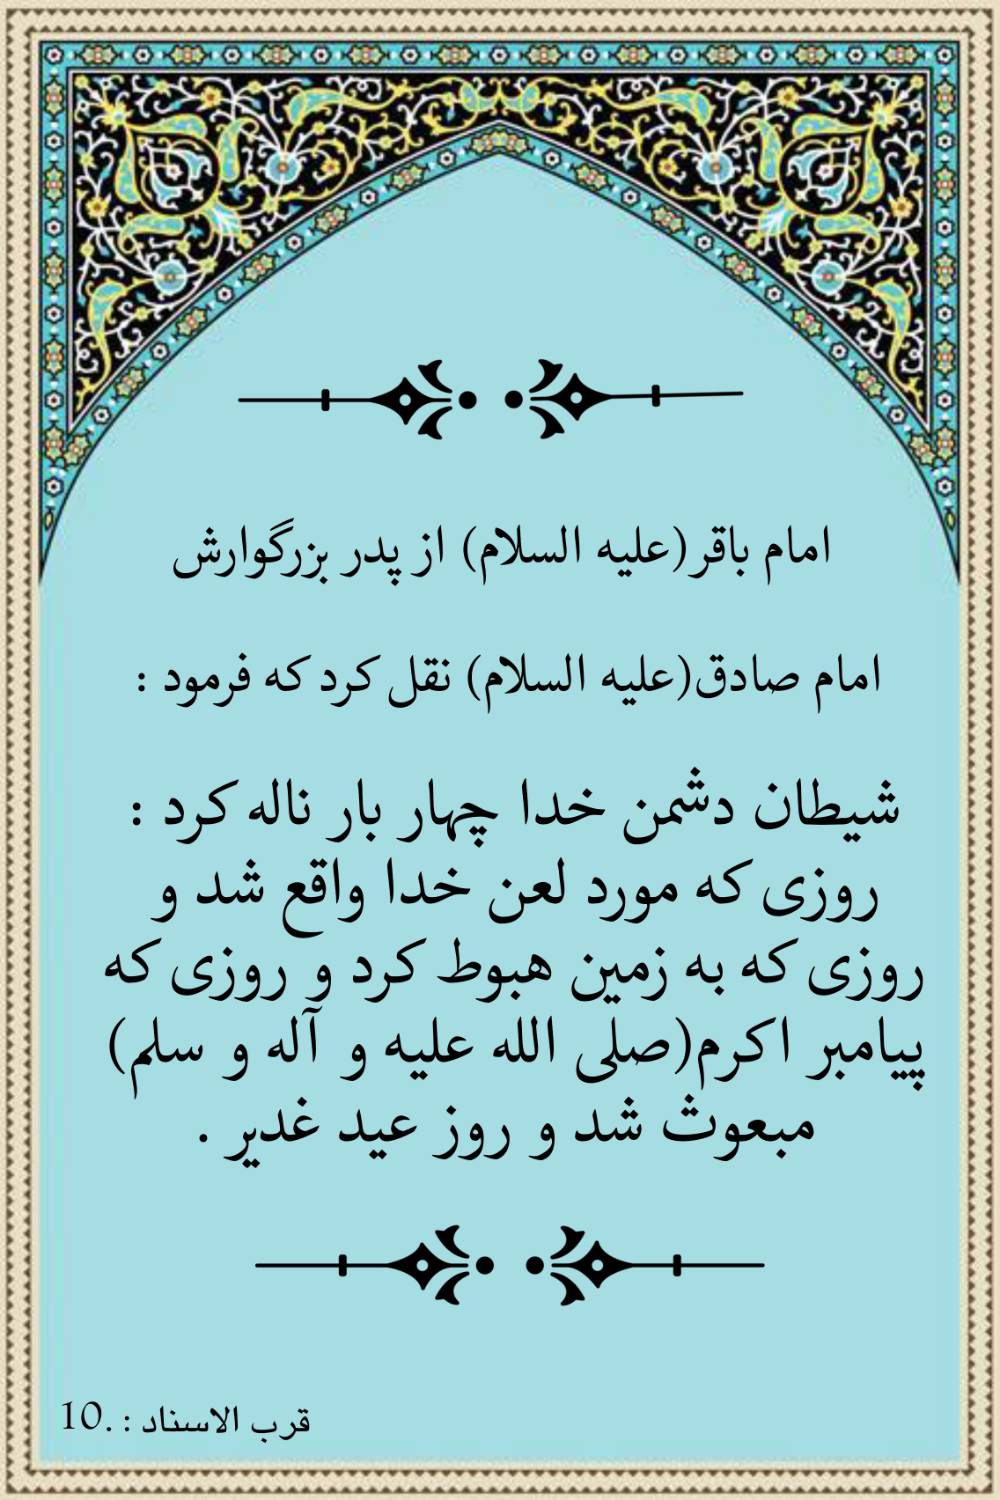 امام باقر(علیه السلام) از پدر بزرگوارش
امام صادق(علیه السلام) نقل کرد که فرمود :
شیطان دشمن خدا چهار بار ناله کرد :
روزی که مورد لعن خدا واقع شد و
روزی که به زمین هبوط کرد و روزی که
پیامبر اکرم(صلی الله علیه و آله و سلم)
مبعوث شد و روز عید غدیر .
قرب الاسناد : .10